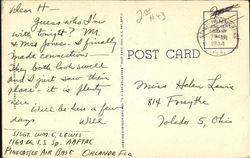 Dear H—
Guess who I'm
with tonight? Mr.
& Mrs Jones. I finally
made connections—
They both look swell
and I just saw their
place — it is plenty
nice
Will be here a few
days Will
S/Sgt. Wm. C. Lewis
Pinecastle Air Base Orlando Fla
Free
POST CARD
1944
Miss Helen Lewis
814 Forsythe
Toledo 5, Ohio